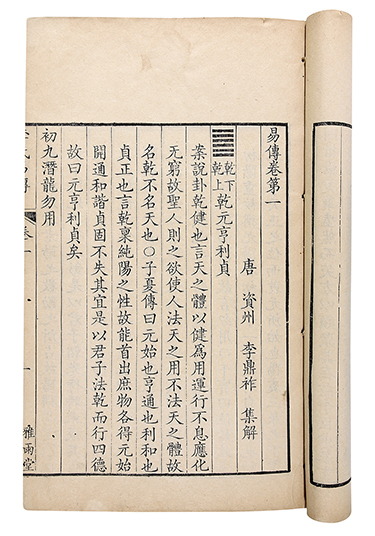 易傳卷第一
唐 資州 李鼎祚 集解
乾下乾上 乾元亨利貞
案說卦乾健也言天之體以健爲用運行不息應化
无窮故聖人則之欲使人法天之用不法天之體故
名乾不名天也〇子夏傳曰元始也亨通也利和也
貞正也言乾稟純陽之性故能首出庶物各得元始
開通和諧貞固不失其宜是以君子法乾而行四德
故曰元亨利貞矣
初九潛龍勿用
雅雨堂